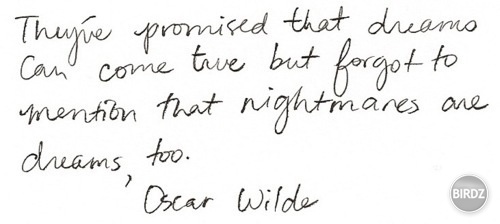 They've promised that dreams
Can come true but forgot to
mention that nightmares are
dreams, too.
Oscar Wilde
BIRDZ